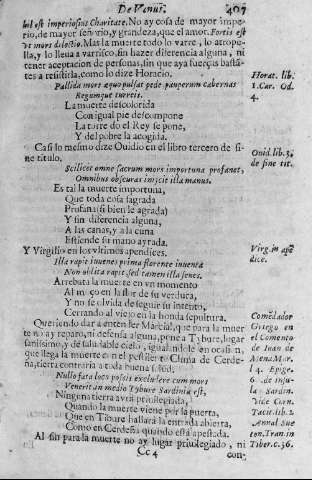 De Venus. 407
bil est imperiosius Charitate. No ay cosa de mayor impe-
rio, de mayor señorio, y grandeza, que el amor. Fortis est
vt mors dilectio. Mas la muerte todo lo varre, lo atrope-
lla, y lo lleua a varrisco, sin hazer diferencia alguna, ni
tener aceptacion de personas, sin que aya fuerças bastã-
tes a resistirla, como lo dize Horacio.
Horat. lib.
1. Car. Od.
4.
Pallida mors æquo pulsat pede pauperum tabernas
Regumque turreis.
La muerte descolorida
Con igual pie descompone
La torre do el Rey se pone,
Y del pobre la acogida.
Casi lo mesmo dize Ouidio en el libro tercero de si-
ne titulo,
Ouid. lib. 3.
de sine tit.
Scilicet omne sacrum mors importuna profanat,
Omnibus obscuras inijcit illa manus.
Es tal la muerte importuna,
Que toda cosa sagrada
Profana (si bien le agrada)
Y sin diferencia alguna,
A las canas, y a la cuna
Estiende su mano ayrada.
Y Virgilio en los vltimos apendices.
Virg. in apẽ
dice.
Illa rapit iuuenes prima florente iuuenta
Non oblita rapit sed tamen illa senes.
Arrebata la muerte en vn momento
Al moço en la flor de su verdura,
Y no se oluida de seguir su intento,
Cerrando al viejo en la honda sepultura.
Queriendo dar a entender Marcial, que para la muer
te no ay reparo, ni defensa alguna, pone a Tybure, lugar
sanissimo, y de saludable cielo, igualandole en ocasion,
que llega la muerte con el pestifero Clima de Cerde-
ña, tierra contraria a toda buena salud.
Comẽdador
Griego en
el Comento
de Iuan de
Mena. Mar.
l 4. Epige.
6. de insu-
la Sardin.
Vide Corn.
Tacit. lib. 2
Annal. Sue
ton. Tran. in
Tiber. c. 36.
Nullo fata loco possis excludere cum mors
Venerit in medio Tybure Sardinia est,
Ninguna tierra aurà priuilegiada,
Quando la muerte viene por la puerta,
Que en Tibure hallarà la entrada abierta,
Como en Cerdeña quando està apestada.
Al fin para la muerte no ay lugar priuilegiado, ni
Cc 4 con-